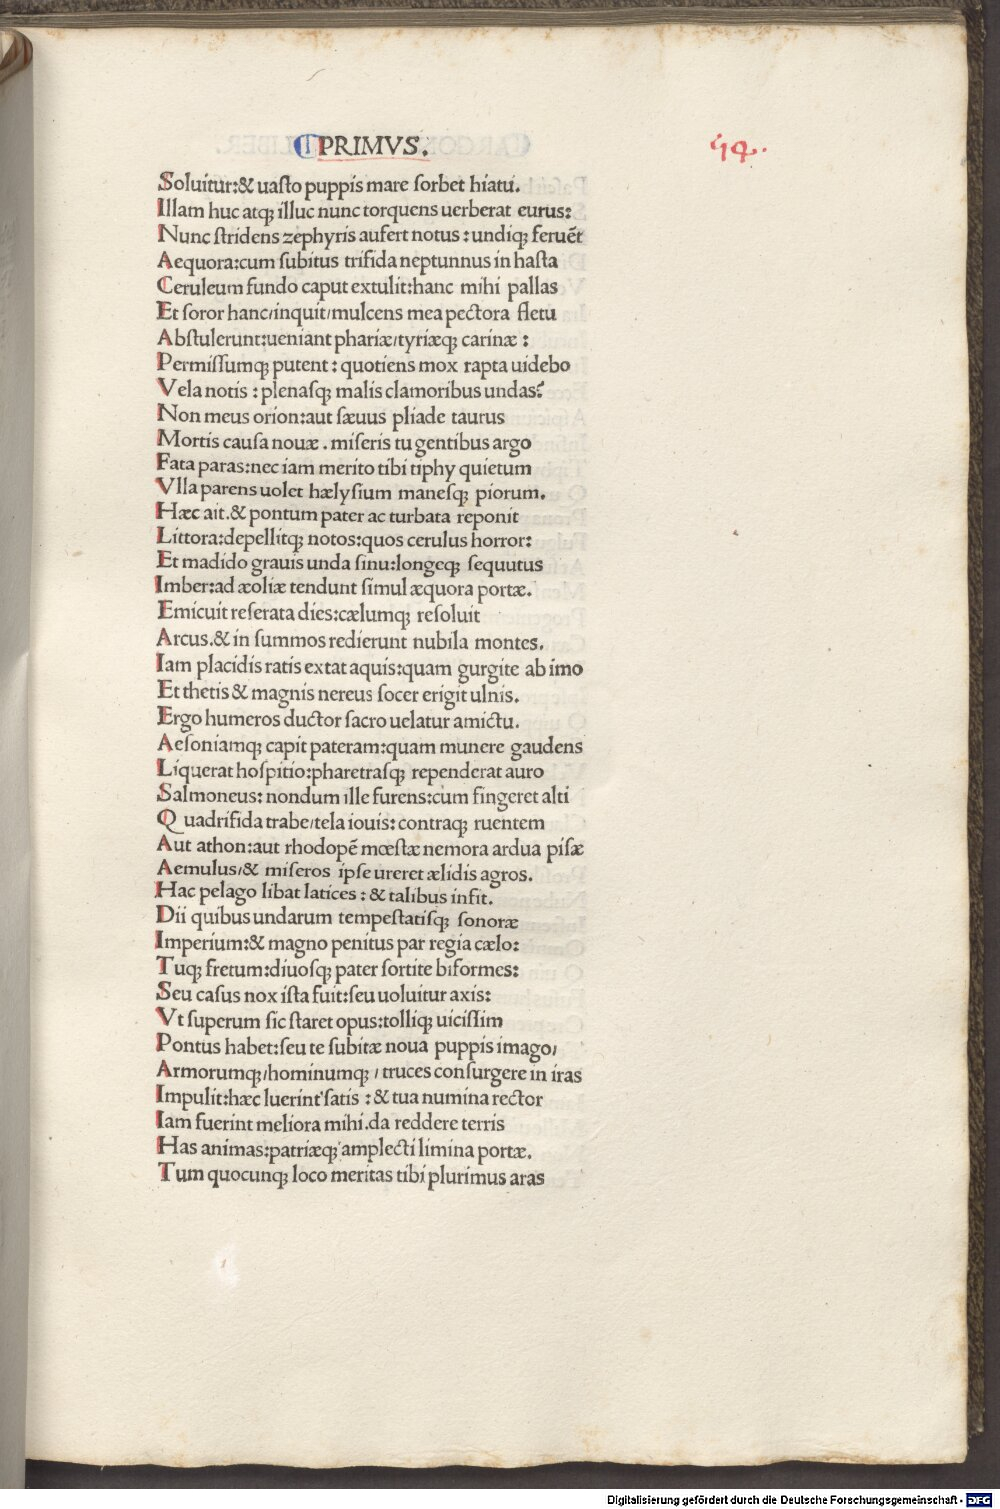 PRIMVS.
14.
Soluitur:& uaſto puppis mare ſorbet hiatu.
Illam huc atqꝫ illuc nunc torquens uerberat eurus:
Nunc ſtridens zephyris aufert notus : undiqꝫ feruēt
Aequora:cum ſubitus trifida neptunnus in haſta
Ceruleum fundo caput extulit:hanc mihi pallas
Et ſoror hanc/inquit/mulcens mea pectora fletu
Abſtulerunt:ueniant phariæ/tyriæqꝫ carinæ :
Permiſſumqꝫ putent : quotiens mox rapta uidebo
Vela notis : plenaſqꝫ malis clamoribus undas?
Non meus orion:aut ſæuus pliade taurus
Mortis cauſa nouæ . miſeris tu gentibus argo
Fata paras:nec iam merito tibi tiphy quietum
Vlla parens uolet hælyſium maneſqꝫ piorum.
Hæc ait.& pontum pater ac turbata reponit
Littora:depellitqꝫ notos:quos cerulus horror:
Et madido grauis unda ſinu:longeqꝫ ſequutus
Imber:ad æoliæ tendunt ſimul æquora portæ.
Emicuit reſerata dies:cælumqꝫ reſoluit
Arcus.& in ſummos redierunt nubila montes.
Iam placidis ratis extat aquis:quam gurgite ab imo
Et thetis & magnis nereus ſocer erigit ulnis.
Ergo humeros ductor ſacro uelatur amictu.
Aeſoniamqꝫ capit pateram:quam munere gaudens
Liquerat hoſpitio:pharetraſqꝫ rependerat auro
Salmoneus: nondum ille furens:cum fingeret alti
Quadrifida trabe/tela iouis: contraqꝫ ruentem
Aut athon:aut rhodopē mœſtæ nemora ardua piſæ
Aemulus/& miſeros ipſe ureret ælidis agros.
Hac pelago libat latices : & talibus infit.
Dii quibus undarum tempeſtatiſqꝫ ſonoræ
Imperium:& magno penitus par regia cælo:
Tuqꝫ fretum:diuoſqꝫ pater ſortite biformes:
Seu caſus nox iſta fuit:ſeu uoluitur axis:
Vt ſuperum ſic ſtaret opus:tolliqꝫ uiciſſim
Pontus habet:ſeu te ſubitæ noua puppis imago/
Armorumqꝫ/hominumqꝫ / truces conſurgere in iras
Impulit:hæc luerint ſatis : & tua numina rector
Iam fuerint meliora mihi.da reddere terris
Has animas:patriæqꝫ amplecti limina portæ.
Tum quocunqꝫ loco meritas tibi plurimus aras
Digitalisierung gefördert durch die Deutsche Forschungsgemeinschaft - DFG